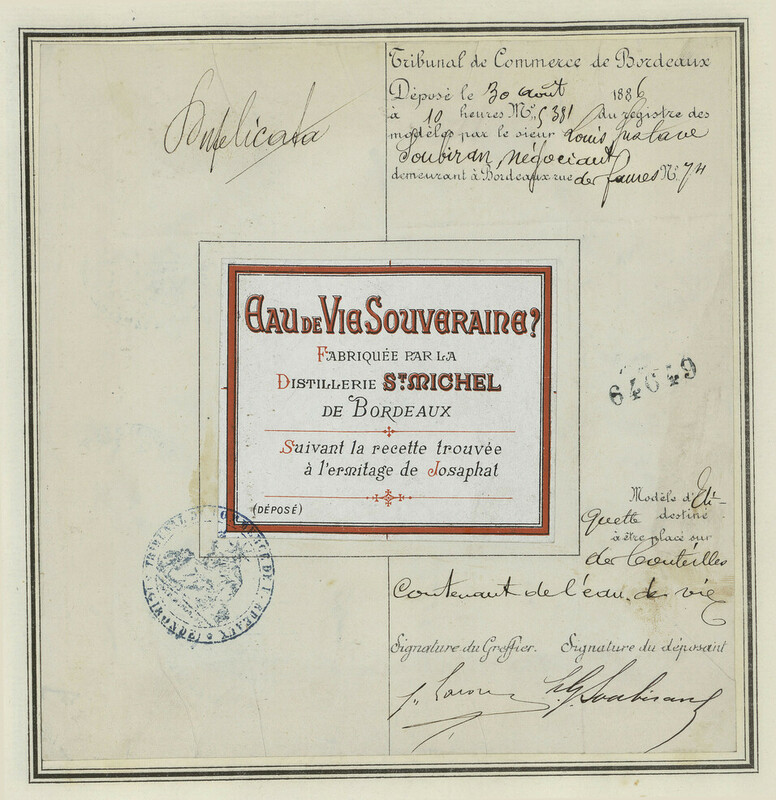 Duplicata
Tribunal de Commerce de Bordeaux
Déposé le 30 août 1886
à 10 heures No 5381 du registre des
modèles par le sieur Louis Gustave
Soubiran, négociant
demeurant à Bordeaux rue des No 74
EAU DE VIE SOUVERAINE?
FABRIQUÉE PAR LA
DISTILLERIE ST MICHEL
DE BORDEAUX
Suivant la recette trouvée
à l'ermitage de Josaphat
(DÉPOSÉ)
64649
Modèle d'Eti-
quette destiné
à être placé sur
des bouteilles
contenant de l'eau de vie
TRIBUNAL DE COMMERCE DE BORDEAUX
Signature du Greffier. Signature du déposant
L.G. Soubiran